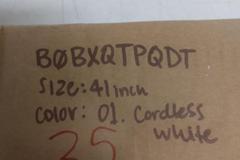 BØBXQTPQDT
SIZE: 41 inch
Color: 01. Cordless
White
25